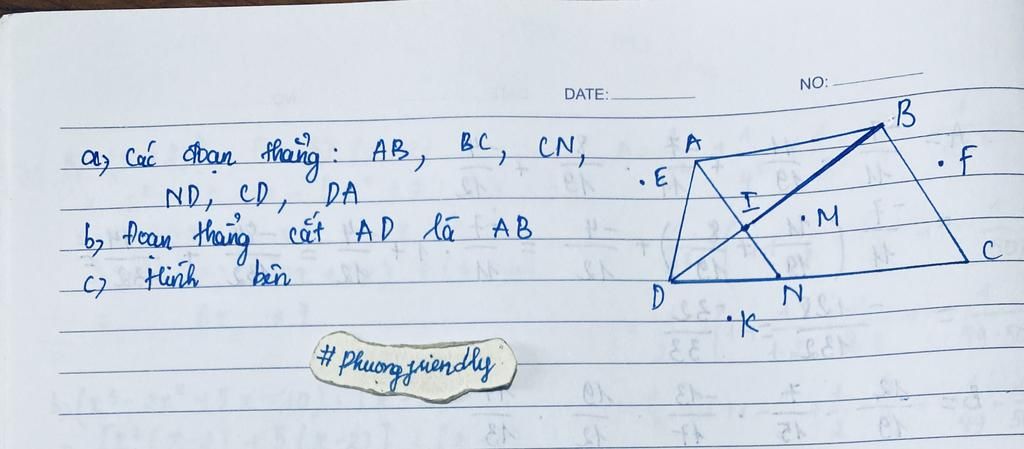 DATE:
NO:
a, Các đoạn thẳng: AB, BC, CN,
ND, CD, DA
b, Đoạn thẳng cắt AD là AB
c, Hình bên
A
B
E
F
I
M
C
D
N
K
#Phuongfriendly